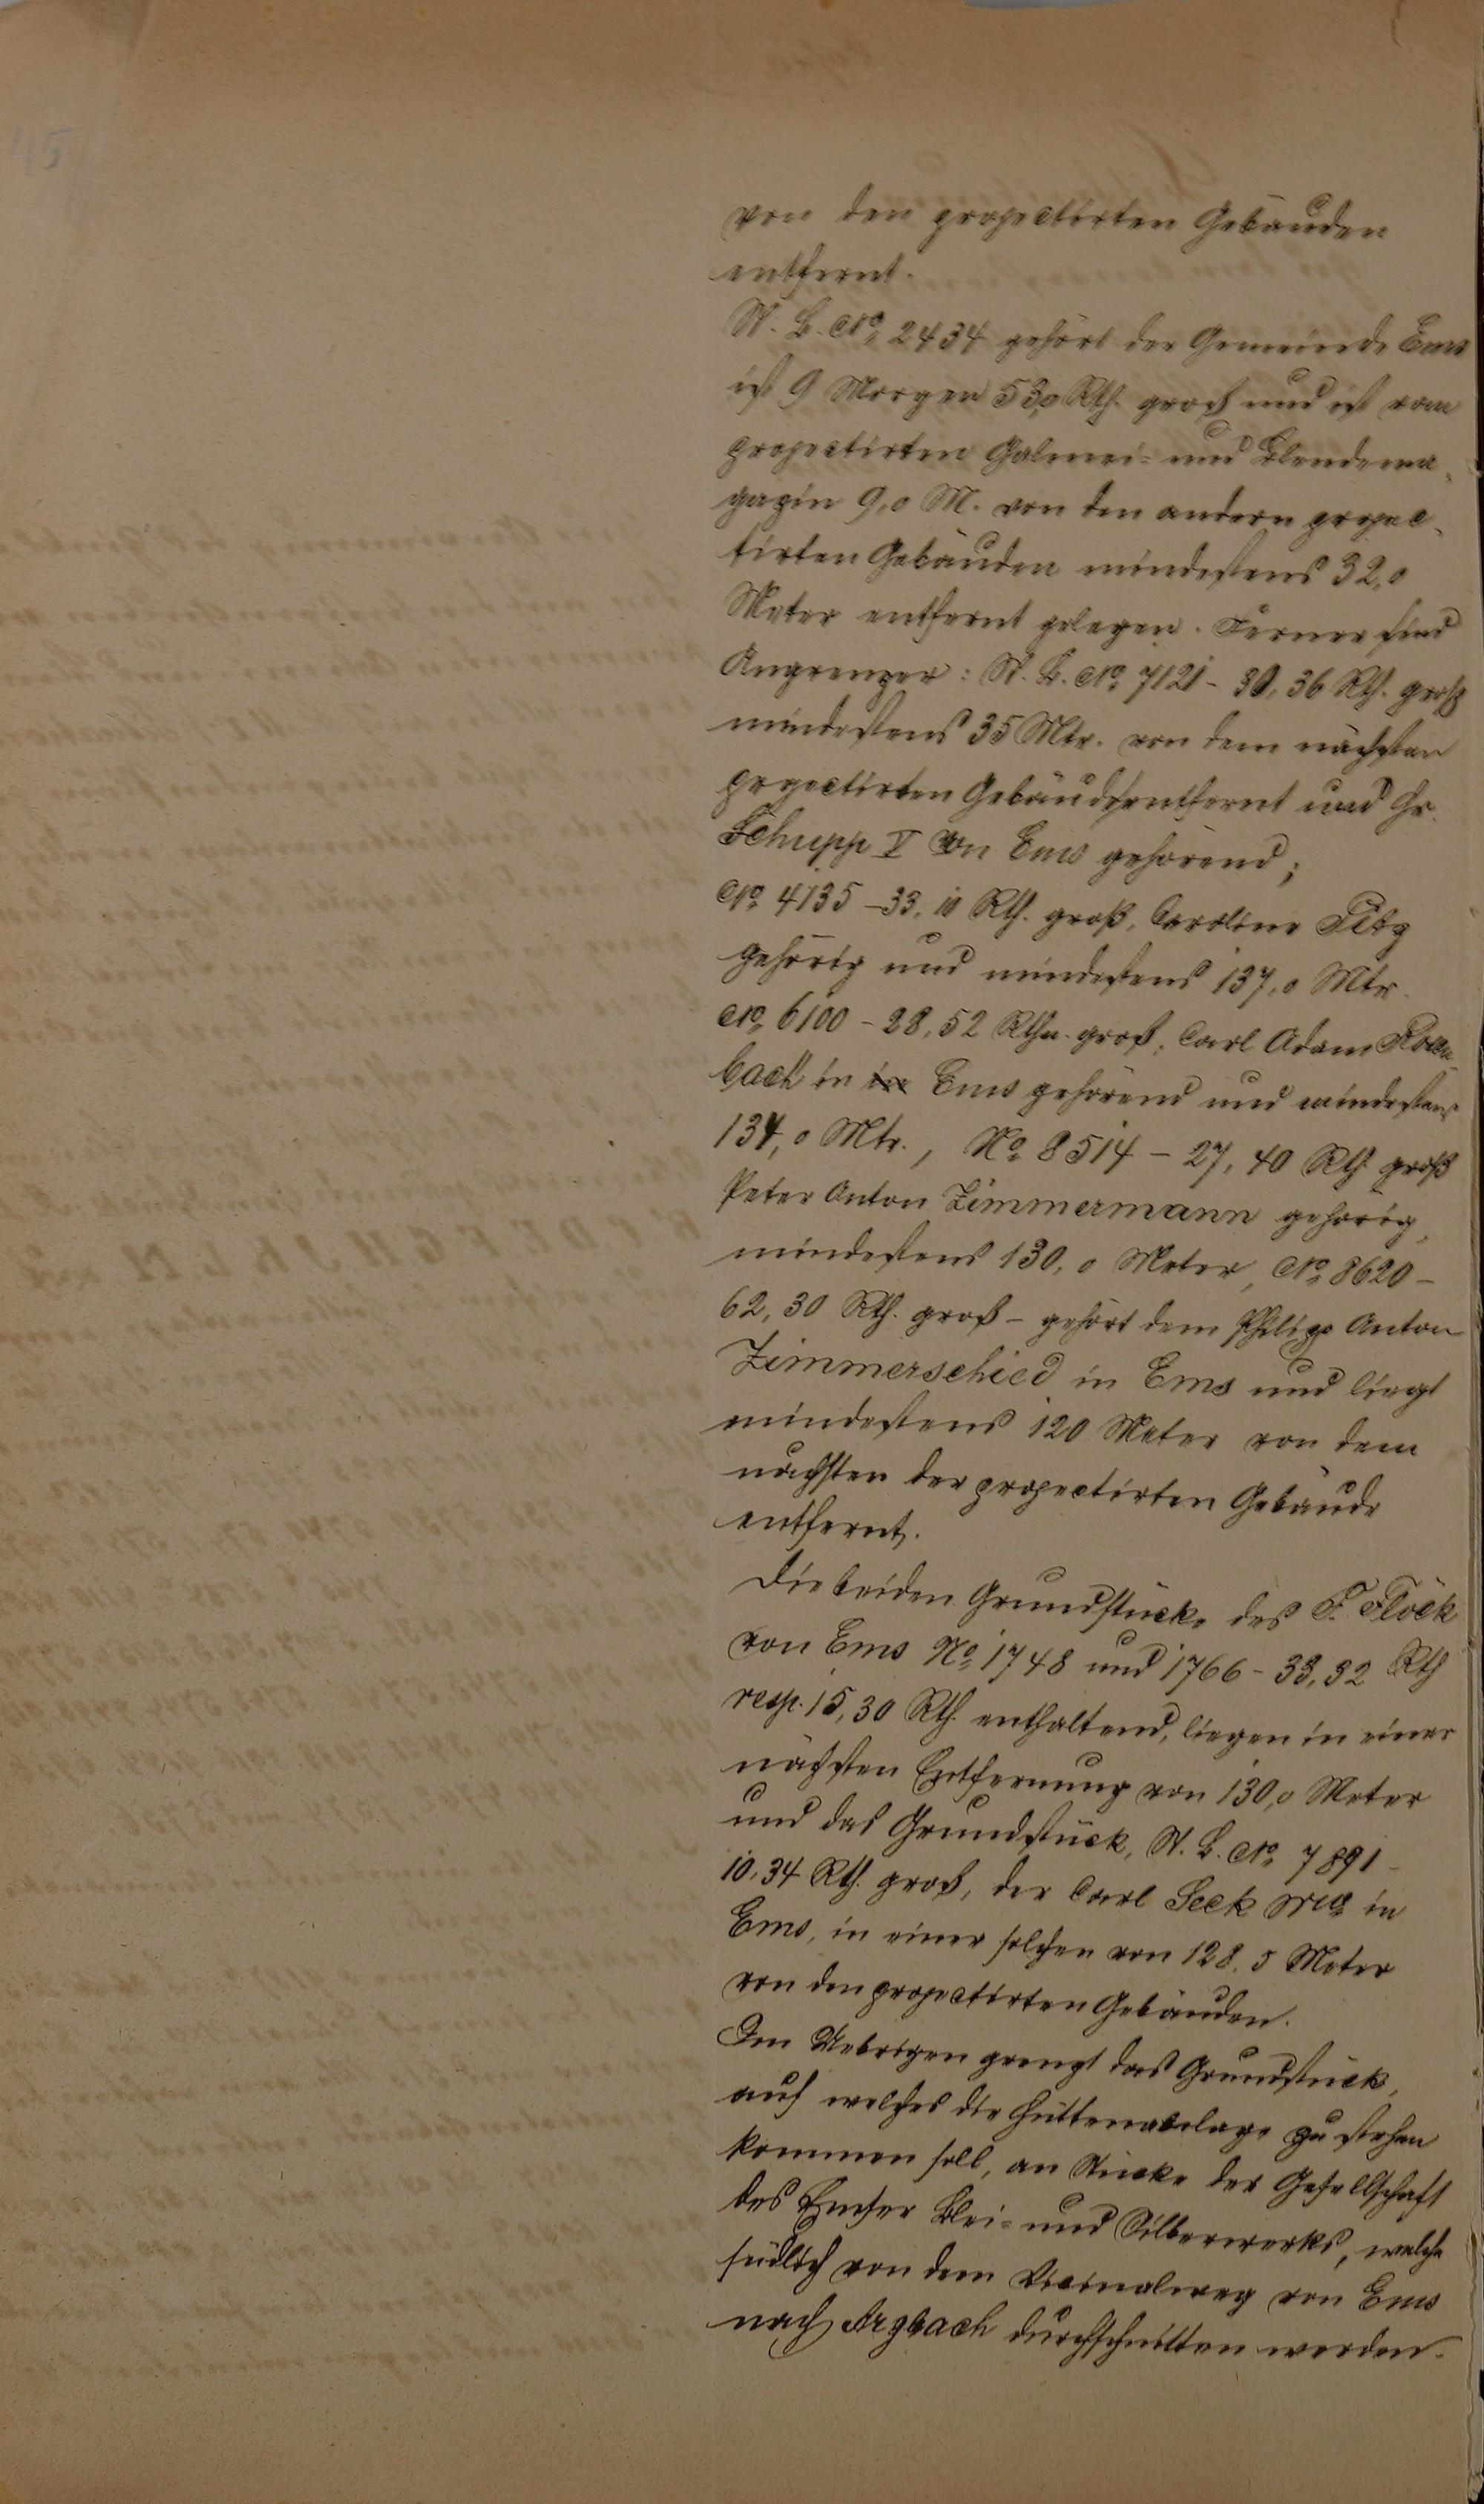 von den projectirten Gebäuden
entfernt.
St. B. No. 2434 gehört der Gemeinde Ems
ist 9 Morgen 53,0 Rth. groß und ist vom
projectirten Galmei- und Blendema-
gazin 9,0 M. von den andern projec-
tirten Gebäuden mindestens 32,0
Meter entfernt gelegen. Ferner sind
Angrenzer: St. B. No. 7121 - 30,36 Rth. groß
mindestens 35 Mtr. von dem nächsten
projectirten Gebäude entfernt und
Schupp V von Ems gehörend;
No. 4135 - 33,10 Rth. groß, Caroline Fitz
gehörig und mindestens 137,0 Mtr.
No. 6100 - 28,52 Rthn. groß, Carl Adam
bach in Ems gehörend und mindestens
134,0 Mtr., No. 8514 - 27,40 Rth. groß
Peter Anton Zimmermann gehörig,
mindestens 130,0 Meter, No. 8620 -
62,30 Rth. groß - gehört dem Philipp Anton
Zimmerschied in Ems und liegt
mindestens 120 Meter von dem
nächsten der projectirten Gebäude
entfernt.
Die beiden Grundstücke des F. Flöck
von Ems No. 1748 und 1766 - 33,32 Rth
resp. 15,30 Rth. enthaltend, liegen in einer
nächsten Entfernung von 130,0 Meter
und das Grundstück, St. B. No. 7891 -
10,34 Rth. groß, der Carl Seck Wwe in
Ems, in einer solchen von 128,5 Meter
von den projectirten Gebäuden.
Im Uebrigen grenzt das Grundstück,
auf welches die Hüttenanlage zu stehen
kommen soll, an Stücke der Gesellschaft
des Emser Blei- und Silberwerks, welche
südlich von dem Vicinalweg von Ems
nach Arzbach durchschnitten werden.